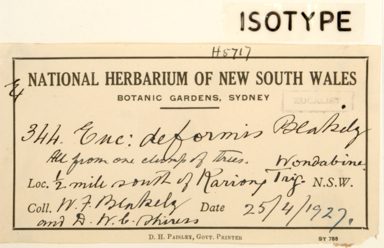 ISOTYPE
H5717
NATIONAL HERBARIUM OF NEW SOUTH WALES
BOTANIC GARDENS, SYDNEY
344. Euc: deformis Blakely
All from one clump of trees. Wondabine
Loc. ½ mile south of Kariong Trig. N.S.W.
Coll. W. F. Blakely Date 25/4/1927.
and D. W. C. Shiress
D. H. PAISLEY, GOVT. PRINTER
ST 788